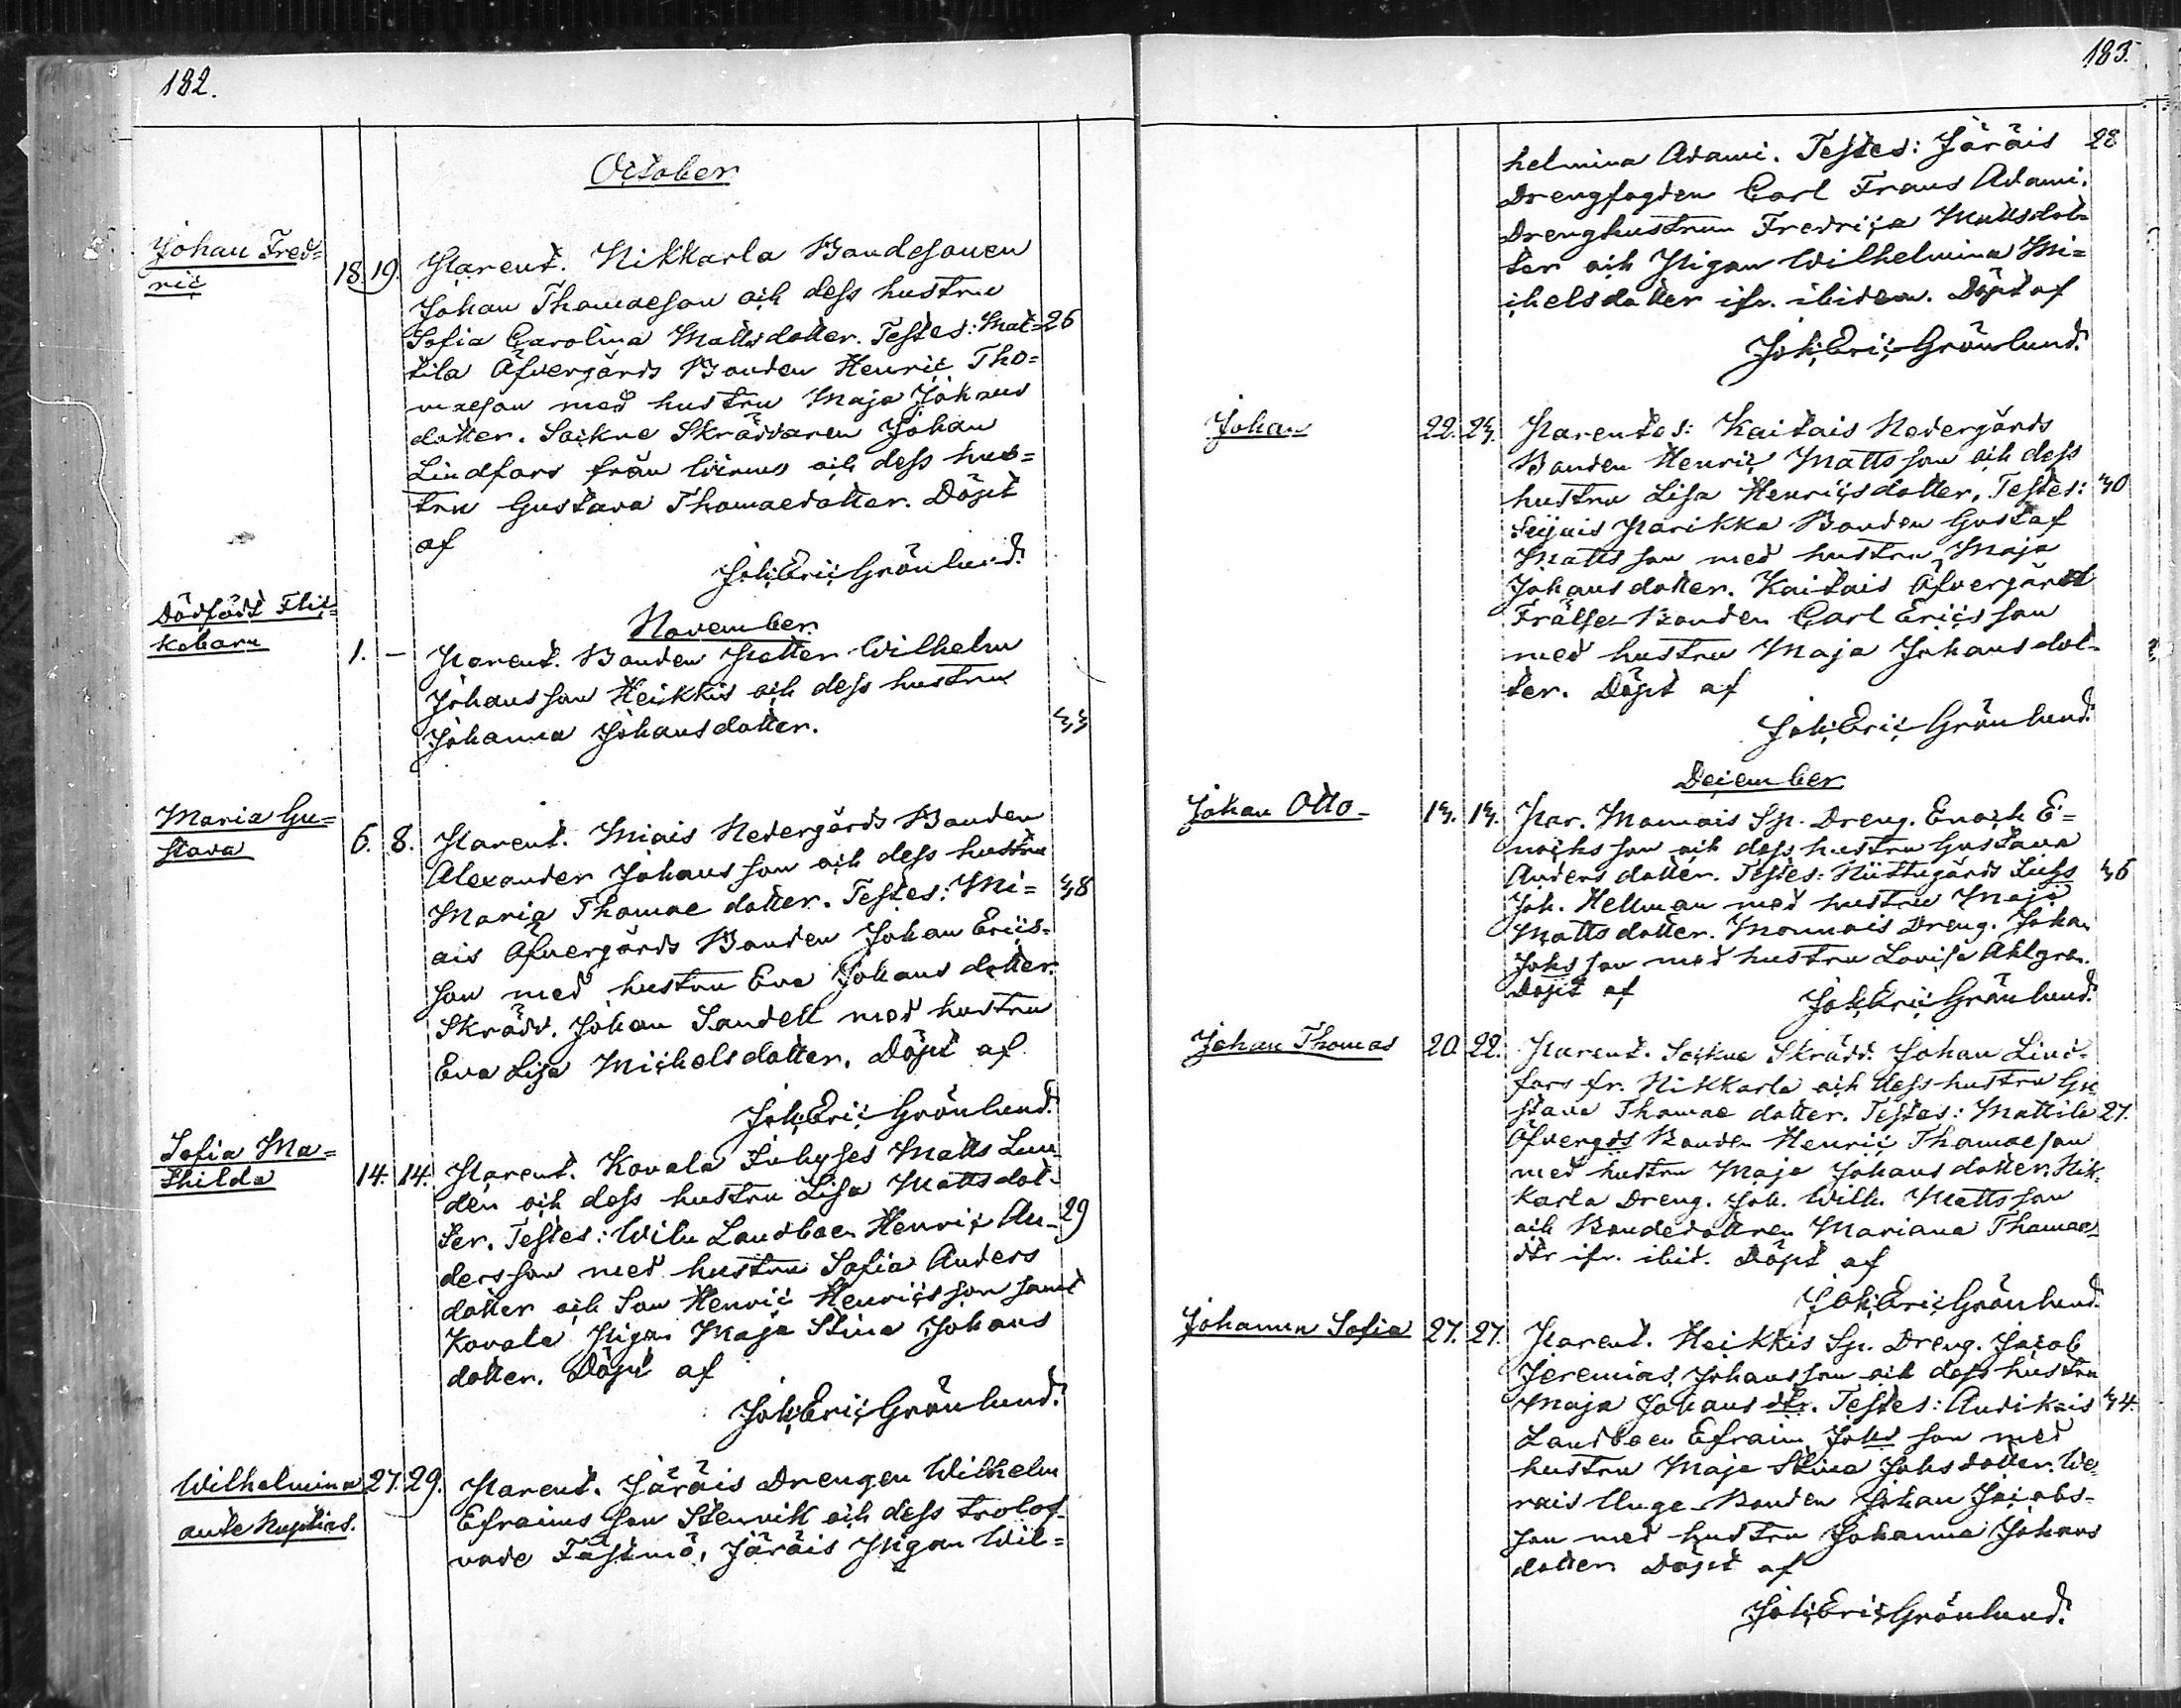 182.
October
Johan Fred=
ric
18. 19. Parent. Nikkarla Bondesonen
Johan Thomaeson och dess hustru
Sofia Carolina Mattsdotter. Testes: Mat= 26
tila Öfvergårds Bonden Henric Tho=
maeson med hustru Maja Johans
dotter. Sockne Skräddaren Johan
Lindfors från Wirmo och dess hus=
tru Gustava Thomaedotter. Döpt
af
Joh: Eric Grönlund.
November
Dödfödt Flic=
kebarn
1. – Parent. Bonden Petter Wilhelm
Johansson Heikkis och dess hustru
Johanna Johansdotter. 33
Maria Gu=
stava
6. 8. Parent. Miais Nedergårds Bonden
Alexander Johansson och dess hustru
Maria Thomae dotter. Testes: Mi= 38
ais Öfvergårds Bonden Johan Erics=
son med hustru Eva Johans dotter.
Skrädd. Johan Sandell med hustru
Eva Lisa Michelsdotter. Döpt af
Joh: Eric Grönlund.
Sofia Ma=
thilda
14. 14. Parent. Kovala Inhyses Matts Lun
dén och dess hustru Lisa Mattsdot=
ter. Testes: Wilu Landboen Henric An= 29
dersson med hustru Sofia Anders
dotter och Son Henric Henricsson samt
Kovala Pigan Maja Stina Johans
dotter. Döpt af
Joh: Eric Grönlund.
Wilhelmina
ante Nuptias.
27. 29. Parent. Järäis Drengen Wilhelm
Efraimsson Stenvik och dess trolof=
vade Fästmö, Järäis Pigan Wil=
183.
helmina Adami. Testes: Järäis 28
Drengfogden Carl Frans Adami.
Drenghustrun Fredrica Mattsdot=
ter och Pigan Wilhelmina Mi=
chelsdotter ifr. ibidem. Döpt af
Joh: Eric Grönlund.
Johan
22. 23. Parentes: Kaitais Nedergårds
Bonden Henric Mattsson och dess
hustru Lisa Henricsdotter. Testes: 30
Seijais Parikka Bonden Gustaf
Mattsson med hustru Maja
Johansdotter. Kaitais Öfvergårds
Frälse Bonden Carl Ericsson
med hustru Maja Johansdot=
ter. Döpt af
Joh: Eric Grönlund.
December
Johan Otto
13. 13. Par. Monnais Sp. Dreng. Enoch E=
nochsson och dess hustru Gustava
Andersdotter. Testes: Luhss 36
Joh. Hellman med hustru Maja
Mattsdotter. Monnais Dreng. Johan
Johsson med hustru Lovisa Ahlgren.
Döpt af Joh: Eric Grönlund.
Johan Thomas
20. 22. Parent. Sockne Skrädd. Johan Lind=
fors fr. Nikkarla och dess hustru Gu
stava Thomae dotter. Testes: Mattila 27.
Öfvergds Bonden Henric Thomaeson
med hustru Maja Johans dotter. Nik=
karla Dreng. Joh. Wilh. Mattsson
och Bondedottren Mariana Thomae
dtr ifr. ibid. Döpt af
Joh: Eric Grönlund.
Johanna Sofia
27. 27. Parent. Heikkis Sp. Dreng. Jacob
Jeremias Johansson och dess hustru
Maja Johans dtr. Testes: Andikais 34.
Landboen Efraim Johs son med
hustru Maja Stina Johsdotter. We=
rais Unge Bonden Johan Jacobs=
son med hustru Johanna Johans
dotter Döpt af
Joh: Eric Grönlund.